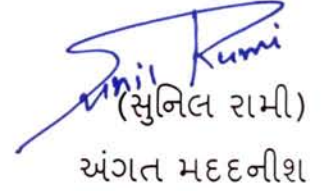 Sunil Rami
(સુનિલ રામી)
અંગત મદદનીશ